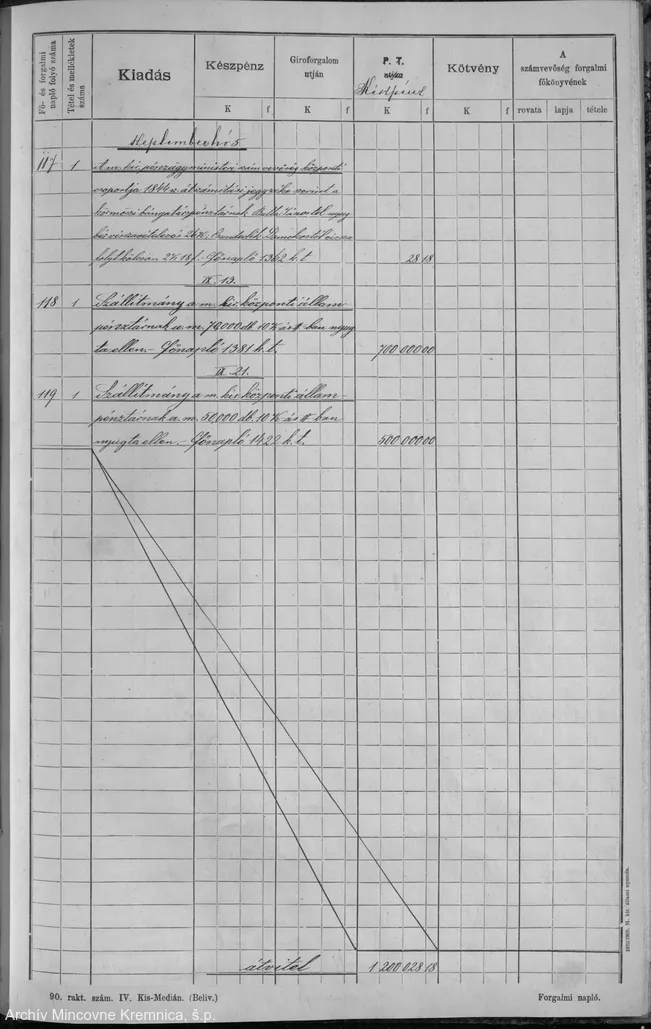 Fő- és forgalmi napló folyó száma
Tétel és mellékletek száma
Kiadás
Készpénz
Giroforgalom utján
P. T. utján
Kötvény
A számvevőség forgalmi főkönyvének
K f K f K f K f rovata lapja tétele
Szeptember hó 5
117 1 A m. kir. pénzügyministeri számvevőség központi
csoportja 1844 sz. átszámitási jegyzéke szerint a
körmöczi
2 K 18 f. – Főnapló 1362 k. t. 28 18
IX. 13.
118 1 Szállítmány a m. kir. központi állam-
pénztárnak u. m. 70,000 db. 10 K ás ban nyug-
ta ellen. – Főnapló 1381 k. t. 700 000 00
IX. 21.
119 1 Szállítmány a m. kir. központi állam-
pénztárnak u. m. 50,000 db. 10 K ás ban
nyugta ellen. – Főnapló 1422 k. t. 500 000 00
átvitel 1 200 028 18
90. rakt. szám. IV. Kis-Medián. (Beliv.)
Forgalmi napló.
Archív Mincovne Kremnica, š.p.